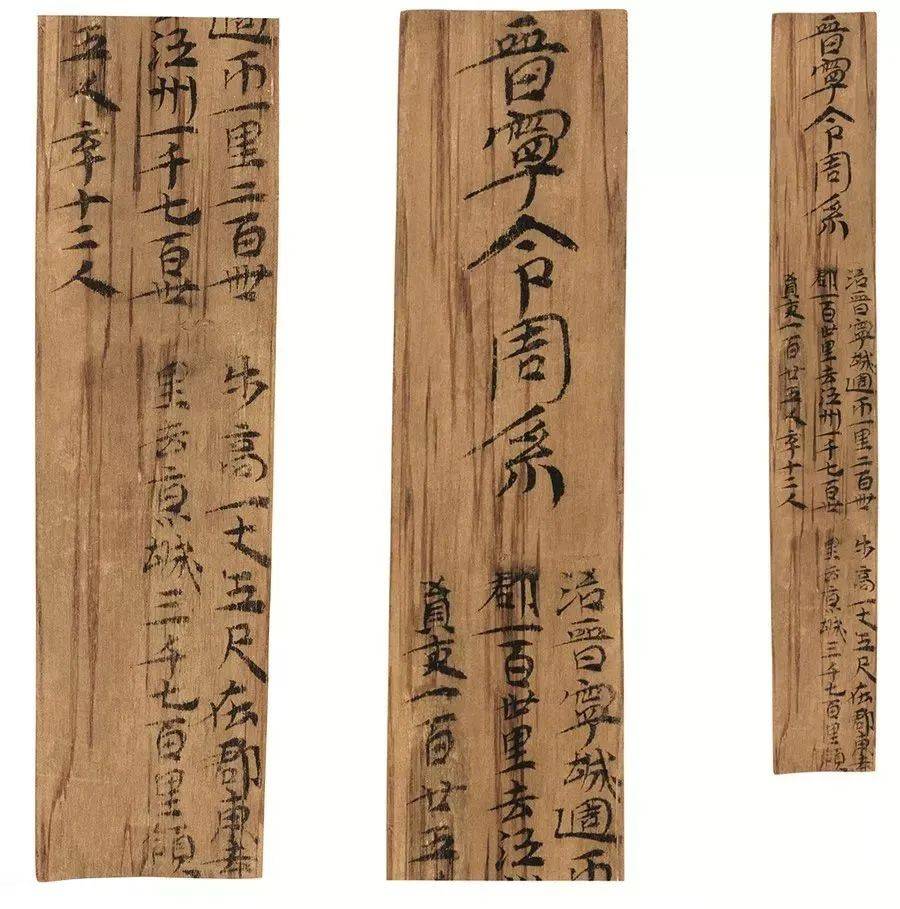 晉寧令周系
治晉寧城週帀一里二百卌步高一丈五尺在郡東去
郡一百卅里去江州一千七百卅里去京城三千七百里領
員吏一百廿五人卒十二人
晉寧令周系
治晉寧城週帀
郡一百卅里去江州
員吏一百廿五
週帀一里二百卌步高一丈五尺在郡東去
江州一千七百卅里去京城三千七百里領
五人卒十二人